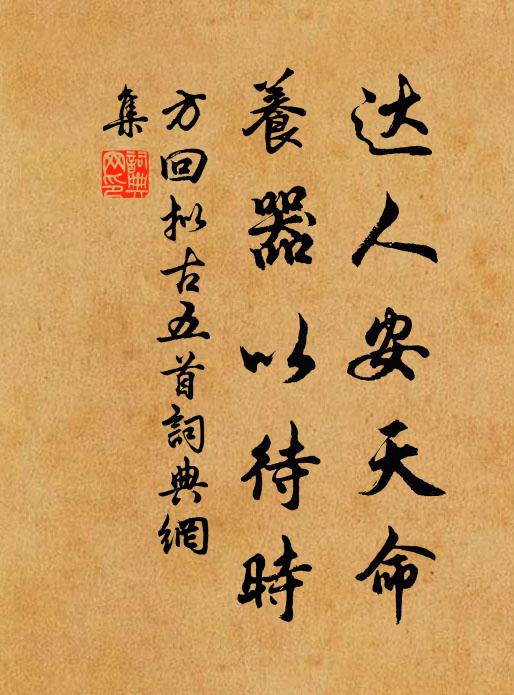 达人安天命
養器以待時
方回拟古五首詞典網
集
詞典網印